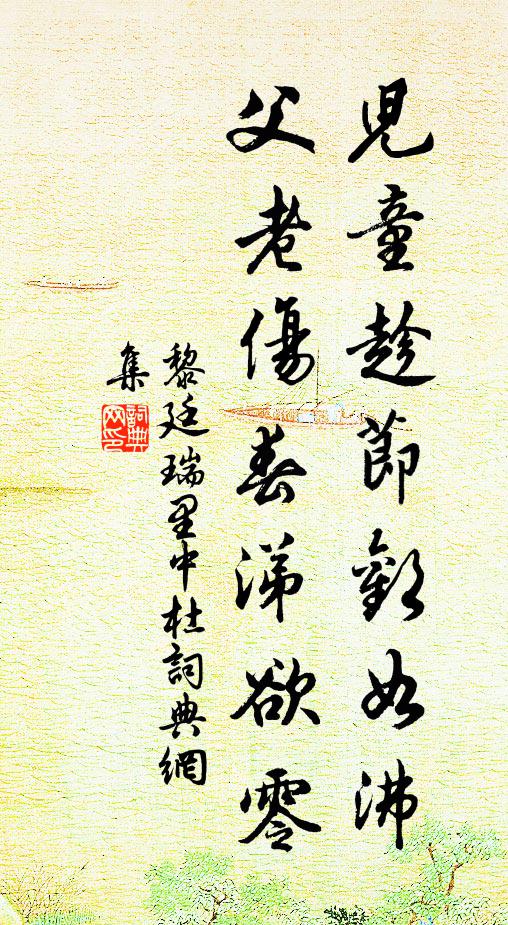 兒童趁節歡如沸
父老傷春涕欲零
黎廷瑞里中社詞典網
集
詞典
网印